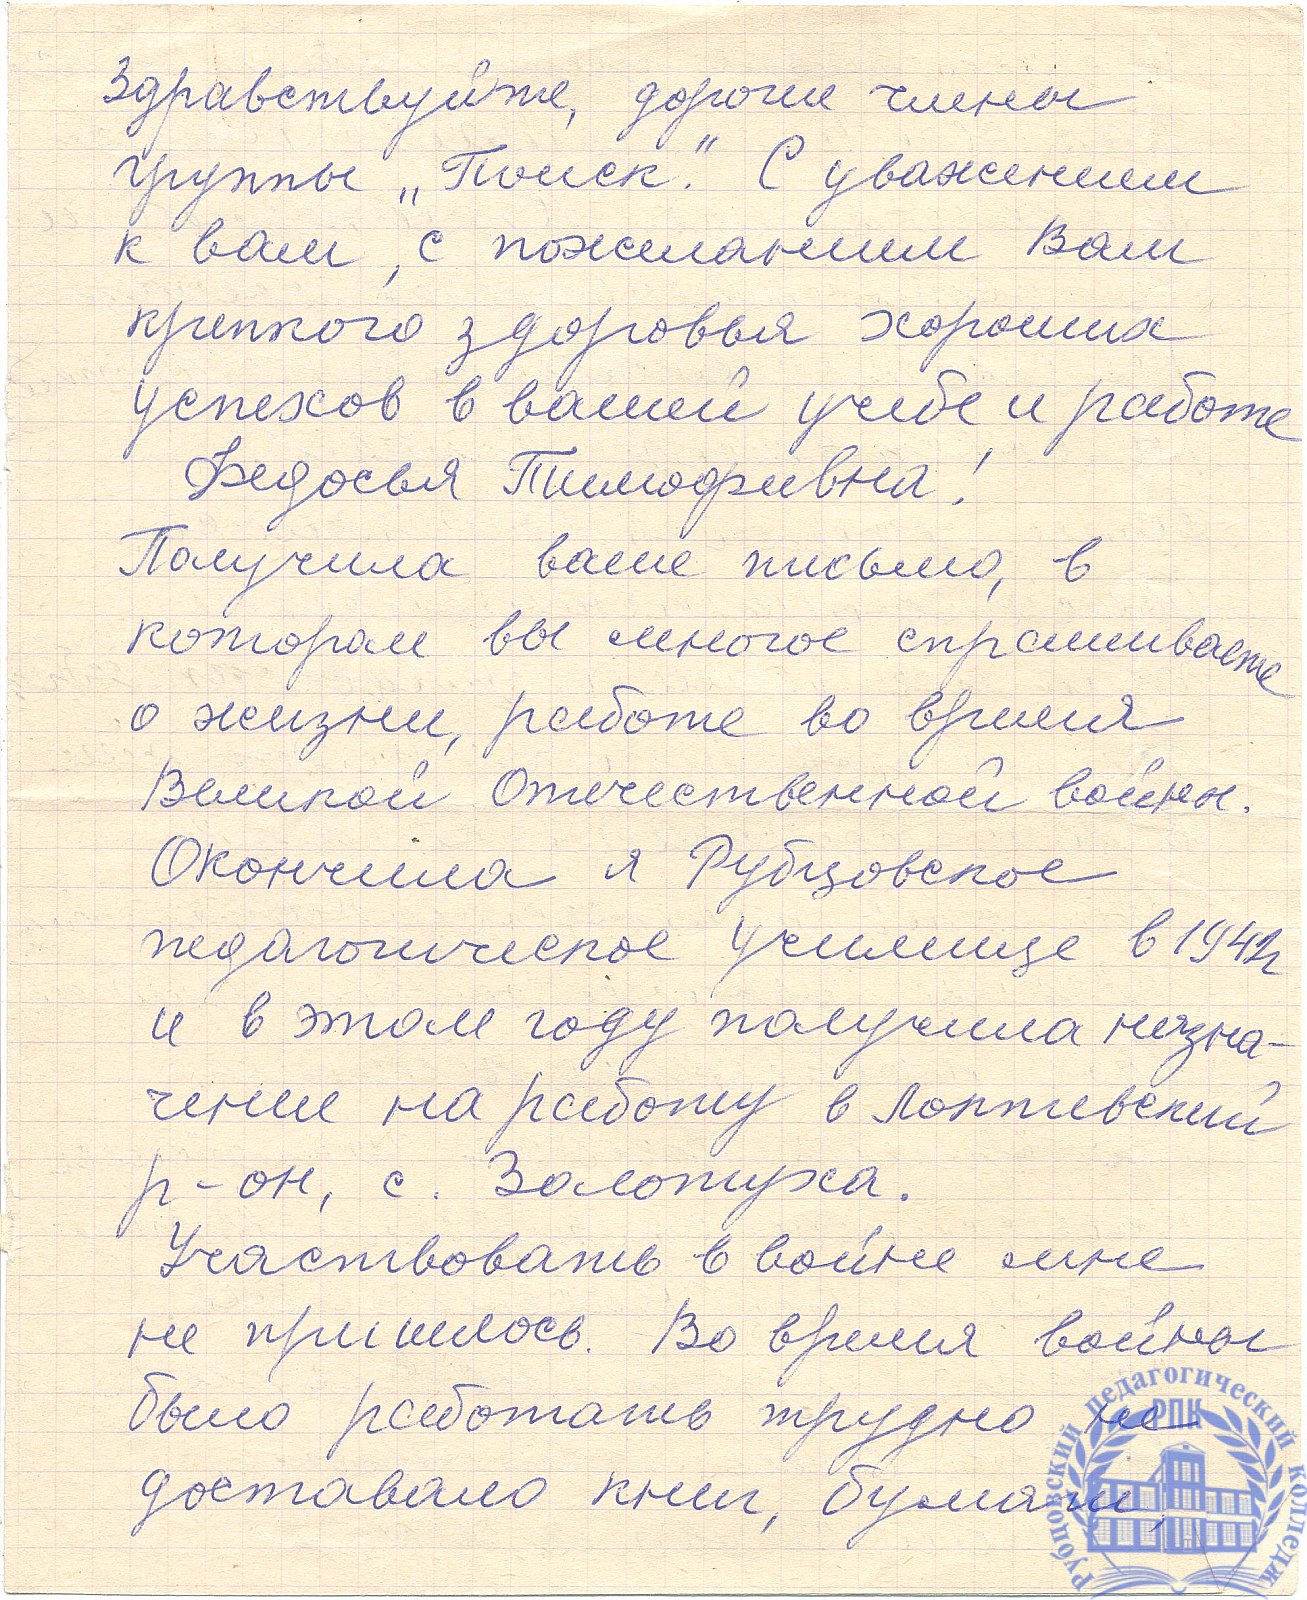 Здравствуйте, дорогие члены
группы „Поиск". С уважением
к вам, с пожеланием Вам
крепкого здоровья хороших
успехов в вашей учебе и работе
Федосья Тимофеивна!
Получила ваше письмо, в
котором вы многое спрашиваете
о жизни, работе во время
Великой Отечественной войны.
Окончила я Рубцовское
педагогическое училище в 1942г
и в этом году получила назна-
чение на работу в Локтевский
р-он, с. Золотуха.
Участвовать в войне мне
не пришлось. Во время войны
было работать трудно не
доставало книг, бумаги,
Рубцовский педагогический колледж
РПК